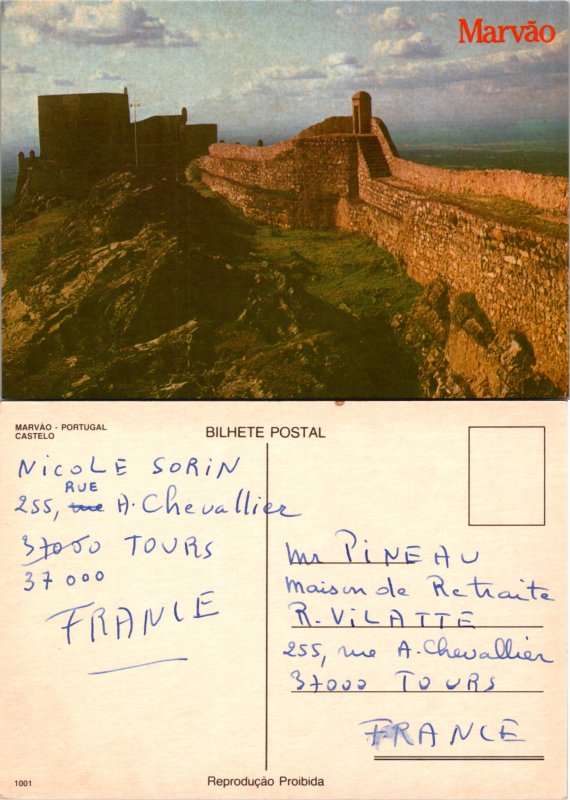 Marvão
MARVÃO - PORTUGAL
CASTELO
BILHETE POSTAL
NICOLE SORIN
RUE
255, rue A. Chevallier
37000 TOURS
37 000
FRANCE
Mr PINEAU
Maison de Retraite
R. VILATTE
255, rue A. Chevallier
37000 TOURS
FRANCE
1001
Reprodução Proibida